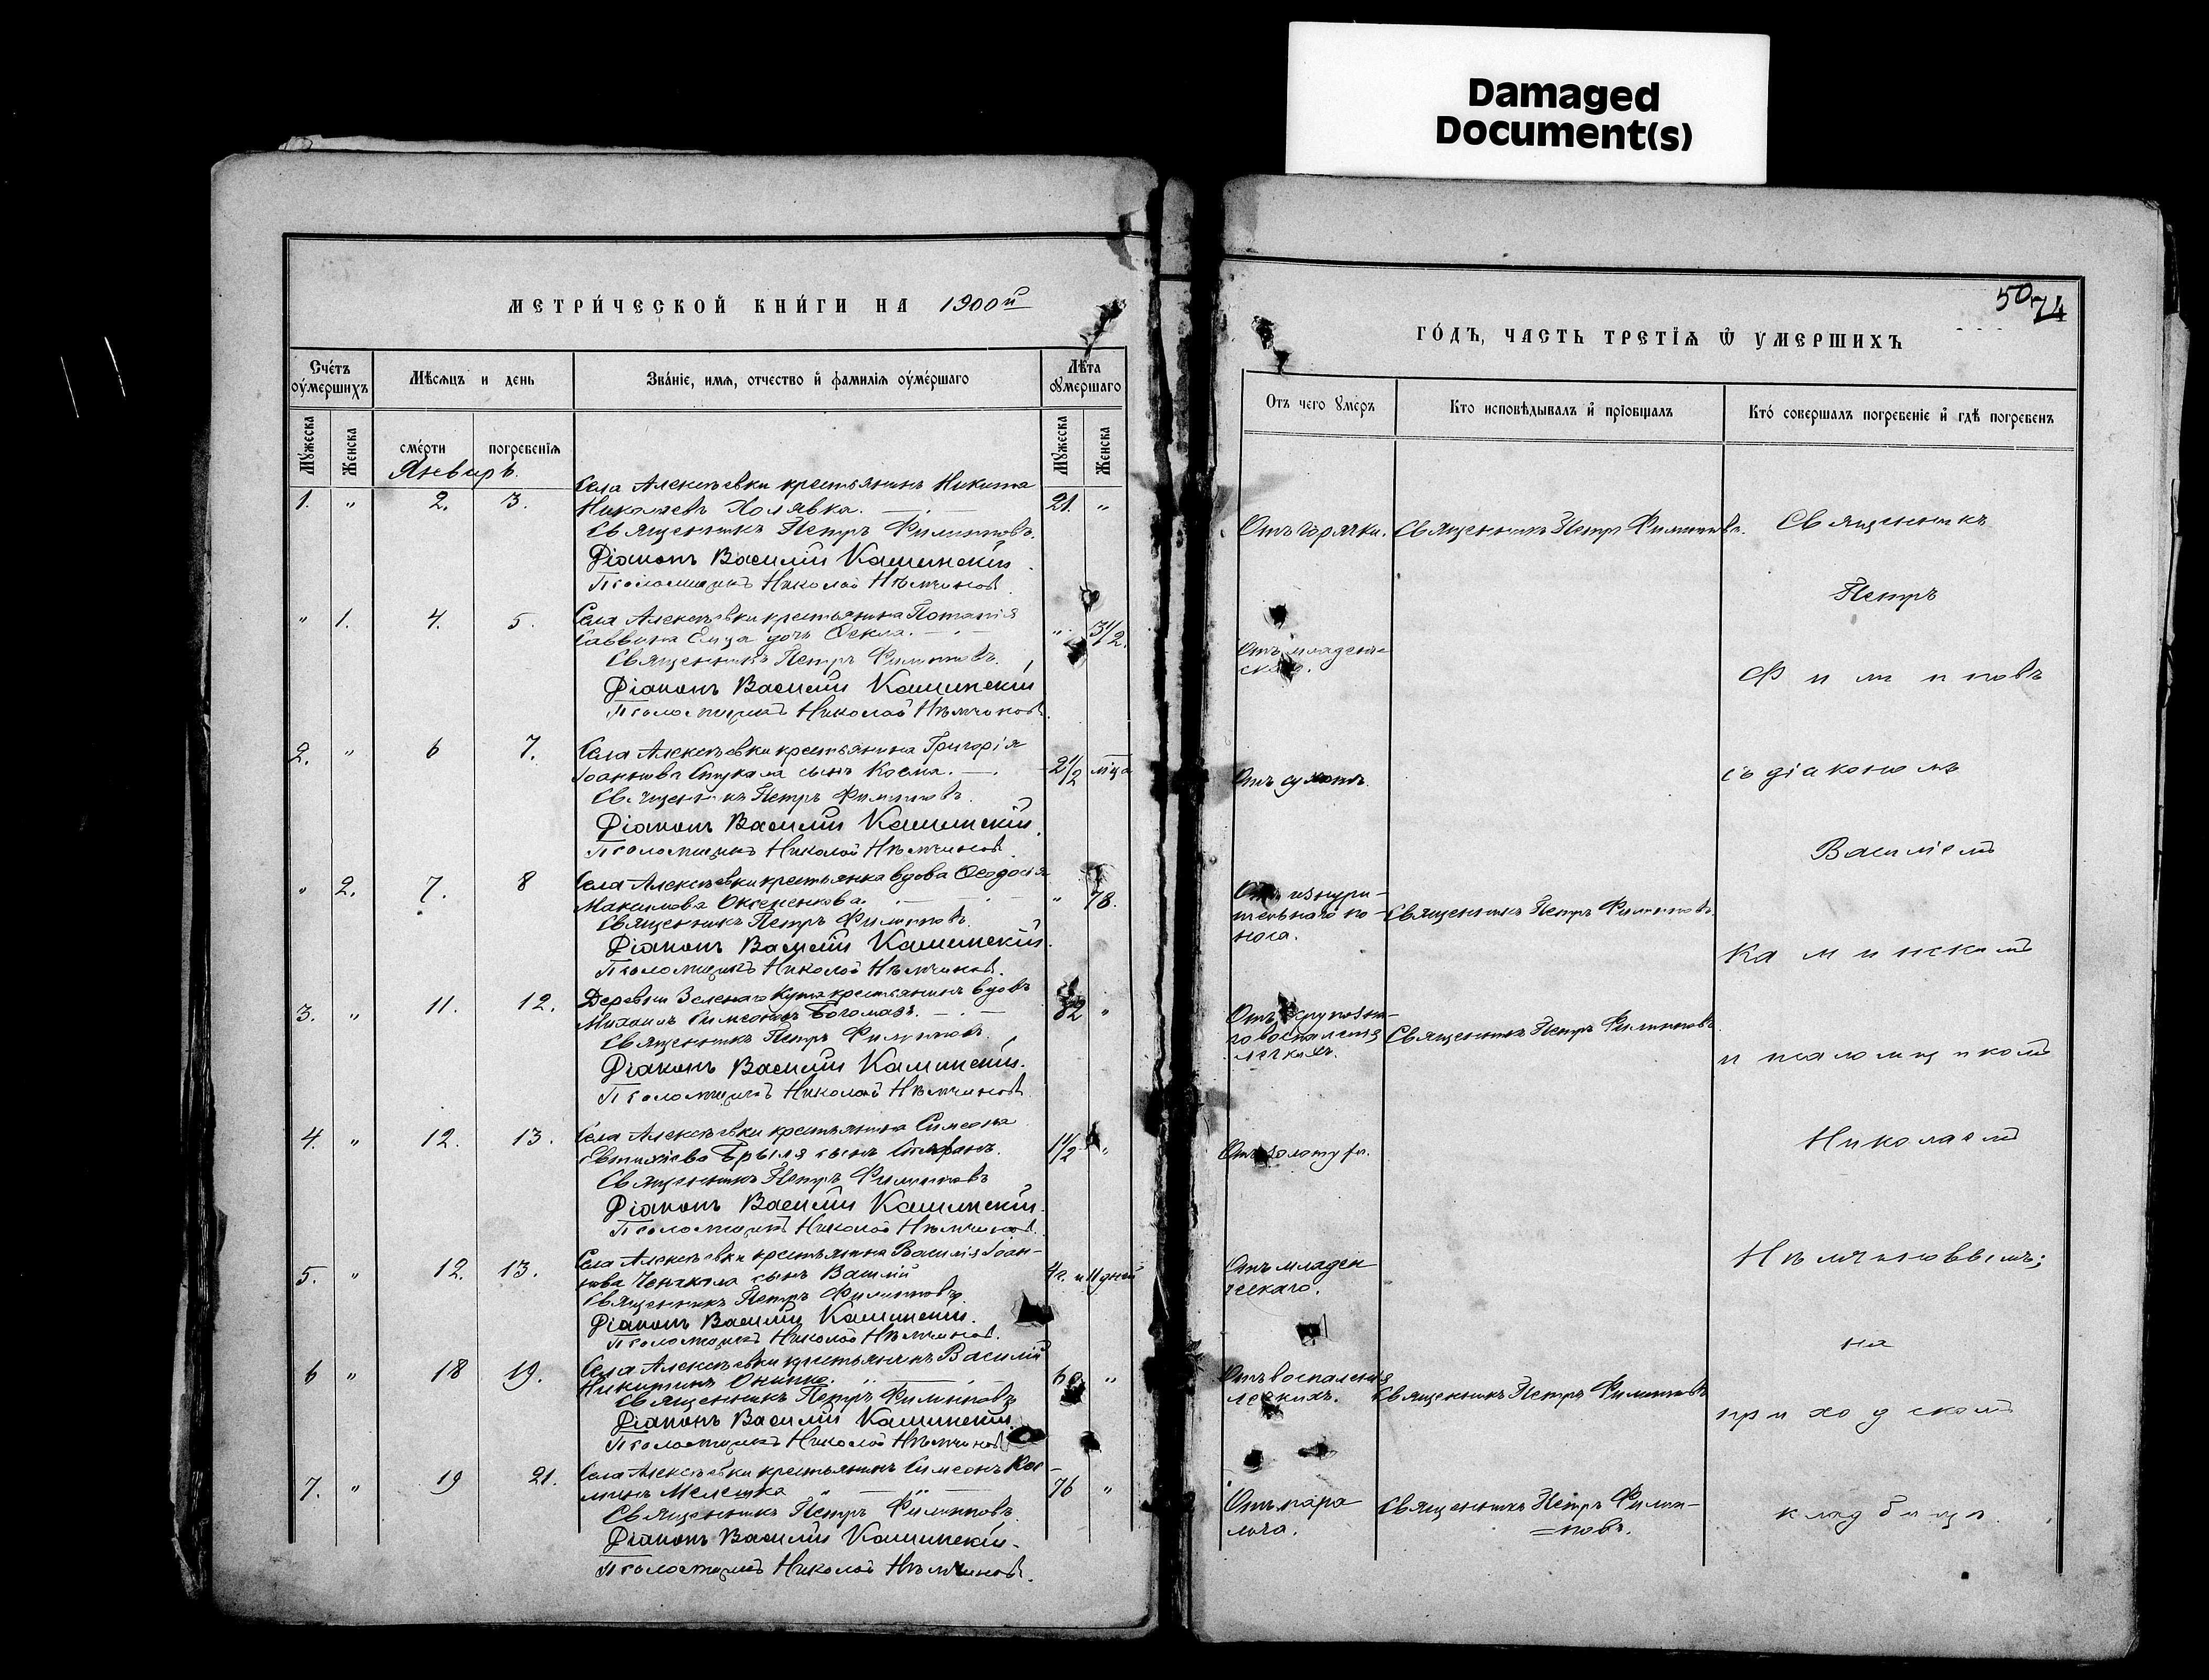 Damaged
Document(s)
МЕТРИ́ЧЕСКОЙ КНИ́ГИ НА 1900й
Сче́тъ оу҆мершихъ
Мѣсяцъ и день
Зва́нїе, имѧ, отчество и҆ фамилїѧ оу҆ме́ршаго
Лѣта оу҆мершаго
Мꙋжеска
Женска
сме́рти
погребенїѧ
Мꙋжеска
Женска
Январь.
1. " 2. 3. Села Алексѣевки крестьянинъ Никита 21. "
Николаевъ Холявка.
Священникъ Петръ Филипповъ.
Діаконъ Василій Каминскій
Псаломщикъ Николай Нѣмчиновъ.
" 1. 4. 5. Села Алексѣевки крестьянина Потапія " 3 1/2.
Саввина дочь Ѳекла.
Священникъ Петръ Филипповъ.
Діаконъ Василій Каминскій
Псаломщикъ Николай Нѣмчиновъ.
2. " 6 7. Села Алексѣевки крестьянина Григорія 2 1/2 мѣца
Іоаннова Стукала сынъ Косма.
Священникъ Петръ Филипповъ.
Діаконъ Василій Каминскій.
Псаломщикъ Николай Нѣмчиновъ.
" 2. 7. 8 Села Алексѣевки крестьянка вдова Ѳеодосія " 78.
Максимова
Священникъ Петръ Филипповъ.
Діаконъ Василій Каминскій.
Псаломщикъ Николай Нѣмчиновъ.
3. " 11. 12. Деревни Зеленаго Кута крестьянинъ вдовъ 82 "
Михаилъ Симеоновъ Богомазъ.
Священникъ Петръ Филипповъ.
Діаконъ Василій Каминскій.
Псаломщикъ Николай Нѣмчиновъ.
4. " 12. 13. Села Алексѣевки крестьянина Симеона 1 1/2 "
Евтихіева Брыля сынъ Стефанъ.
Священникъ Петръ Филипповъ
Діаконъ Василій Каминскій.
Псаломщикъ Николай Нѣмчиновъ.
5. " 12. 13. Села Алексѣевки крестьянина Василія Іоан-
нова сынъ Василій 4г. и 11 дней
Священникъ Петръ Филипповъ.
Діаконъ Василій Каминскій.
Псаломщикъ Николай Нѣмчиновъ.
6 " 18 19. Села Алексѣевки крестьянинъ Василій 60 "
Никитинъ Онипко.
Священникъ Петръ Филипповъ
Діаконъ Василій Каминскій.
Псаломщикъ Николай Нѣмчиновъ
7. " 19 21. Села Алексѣевки крестьянинъ Симеонъ Кос- 76 "
минъ Мелешка
Священникъ Петръ Филипповъ.
Діаконъ Василій Каминскій.
Псаломщикъ Николай Нѣмчиновъ.
50
74
ГО́ДЪ, ЧАСТЬ ТРЕТЇѦ Ѿ УМЕРШИХЪ
Отъ чего ꙋме́ръ
Кто исповѣдывалъ и҆ прїобщалъ
Кто́ совершалъ погребенїе и҆ гдѣ погребенъ
Отъ горячки. Священникъ Петръ Филипповъ. Священникъ
Петръ
Отъ младенче-
скаго.
Филипповъ
Отъ сухотъ.
съ діакономъ
Василіемъ
Отъ изнури-
тельнаго по-
носа.
Священникъ Петръ Филипповъ.
Каминскимъ
Отъ крупозна-
го воспаленія
легкихъ.
Священникъ Петръ Филипповъ
и псаломщикомъ
Отъ золотухи.
Николаемъ
Отъ младен
ческаго.
Нѣмчиновымъ;
на
Отъ воспаленія
легкихъ.
Священникъ Петръ Филипповъ
приходскомъ
Отъ пара
лича.
Священникъ Петръ Филип-
=повъ.
кладбищѣ.